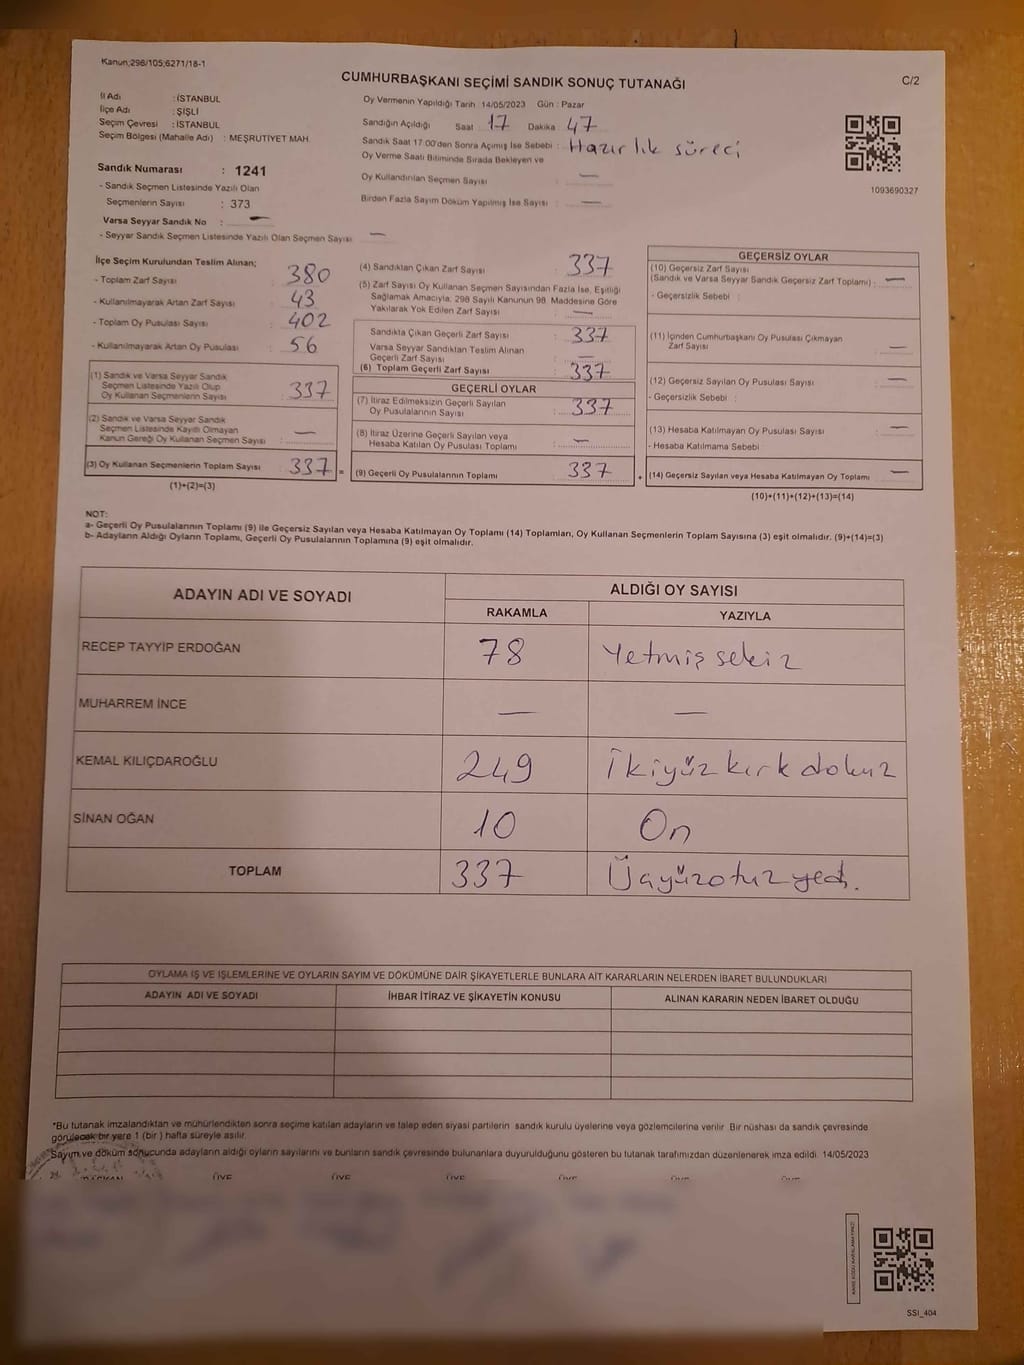 Kanun;298/105;6271/18-1
CUMHURBAŞKANI SEÇİMİ SANDIK SONUÇ TUTANAĞI
C/2
İl Adı : İSTANBUL
İlçe Adı : ŞİŞLİ
Seçim Çevresi : İSTANBUL
Seçim Bölgesi (Mahalle Adı) : MEŞRUTİYET MAH.
Sandık Numarası : 1241
- Sandık Seçmen Listesinde Yazılı Olan
Seçmenlerin Sayısı : 373
Varsa Seyyar Sandık No : —
- Seyyar Sandık Seçmen Listesinde Yazılı Olan Seçmen Sayısı : —
Oy Vermenin Yapıldığı Tarih 14/05/2023 Gün : Pazar
Sandığın Açıldığı Saat 17 Dakika 47
Sandık Saat 17.00'den Sonra Açımış İse Sebebi : Hazırlık süreci
Oy Verme Saati Bitiminde Sırada Bekleyen ve
Oy Kullandırılan Seçmen Sayısı : —
Birden Fazla Sayım Döküm Yapılmış İse Sayısı : —
1093690327
İlçe Seçim Kurulundan Teslim Alınan;
- Toplam Zarf Sayısı : 380
- Kullanılmayarak Artan Zarf Sayısı : 43
- Toplam Oy Pusulası Sayısı : 402
- Kullanılmayarak Artan Oy Pusulası : 56
(1) Sandık ve Varsa Seyyar Sandık
Seçmen Listesinde Yazılı Olup
Oy Kullanan Seçmenlerin Sayısı : 337
(2) Sandık ve Varsa Seyyar Sandık
Seçmen Listesinde Kayıtlı Olmayan
Kanun Gereği Oy Kullanan Seçmen Sayısı : —
(3) Oy Kullanan Seçmenlerin Toplam Sayısı : 337 =
(1)+(2)=(3)
(4) Sandıktan Çıkan Zarf Sayısı : 337
(5) Zarf Sayısı Oy Kullanan Seçmen Sayısından Fazla İse, Eşitliği
Sağlamak Amacıyla, 298 Sayılı Kanunun 98. Maddesine Göre
Yakılarak Yok Edilen Zarf Sayısı : —
Sandıkta Çıkan Geçerli Zarf Sayısı : 337
Varsa Seyyar Sandıktan Teslim Alınan
Geçerli Zarf Sayısı : —
(6) Toplam Geçerli Zarf Sayısı : 337
GEÇERLİ OYLAR
(7) İtiraz Edilmeksizin Geçerli Sayılan
Oy Pusulalarının Sayısı : 337
(8) İtiraz Üzerine Geçerli Sayılan veya
Hesaba Katılan Oy Pusulası Toplamı : —
(9) Geçerli Oy Pusulalarının Toplamı : 337 +
GEÇERSİZ OYLAR
(10) Geçersiz Zarf Sayısı
(Sandık ve Varsa Seyyar Sandık Geçersiz Zarf Toplamı) : —
- Geçersizlik Sebebi :
(11) İçinden Cumhurbaşkanı Oy Pusulası Çıkmayan
Zarf Sayısı : —
(12) Geçersiz Sayılan Oy Pusulası Sayısı : —
- Geçersizlik Sebebi :
(13) Hesaba Katılmayan Oy Pusulası Sayısı : —
- Hesaba Katılmama Sebebi
(14) Geçersiz Sayılan veya Hesaba Katılmayan Oy Toplamı : —
(10)+(11)+(12)+(13)=(14)
NOT:
a- Geçerli Oy Pusulalarının Toplamı (9) ile Geçersiz Sayılan veya Hesaba Katılmayan Oy Toplamı (14) Toplamları, Oy Kullanan Seçmenlerin Toplam Sayısına (3) eşit olmalıdır. (9)+(14)=(3)
b- Adayların Aldığı Oyların Toplamı, Geçerli Oy Pusulalarının Toplamına (9) eşit olmalıdır.
ADAYIN ADI VE SOYADI
ALDIĞI OY SAYISI
RAKAMLA YAZIYLA
RECEP TAYYİP ERDOĞAN 78 Yetmiş sekiz
MUHARREM İNCE — —
KEMAL KILIÇDAROĞLU 249 İkiyüz kırk dokuz
SİNAN OĞAN 10 On
TOPLAM 337 Üçyüzotuz yedi.
OYLAMA İŞ VE İŞLEMLERİNE VE OYLARIN SAYIM VE DÖKÜMÜNE DAİR ŞİKAYETLERLE BUNLARA AİT KARARLARIN NELERDEN İBARET BULUNDUKLARI
ADAYIN ADI VE SOYADI İHBAR İTİRAZ VE ŞİKAYETİN KONUSU ALINAN KARARIN NEDEN İBARET OLDUĞU
*Bu tutanak imzalandıktan ve mühürlendikten sonra seçime katılan adayların ve talep eden siyasi partilerin sandık kurulu üyelerine veya gözlemcilerine verilir. Bir nüshası da sandık çevresinde
görülecek bir yere 1 (bir) hafta süreyle asılır.
Sayım ve döküm sonucunda adayların aldığı oyların sayılarını ve bunların sandık çevresinde bulunanlara duyurulduğunu gösteren bu tutanak tarafımızdan düzenlenerek imza edildi. 14/05/2023
BAŞKAN ÜYE ÜYE ÜYE ÜYE ÜYE ÜYE
KARE KODU KARALAMAYINIZ!
SSİ_404